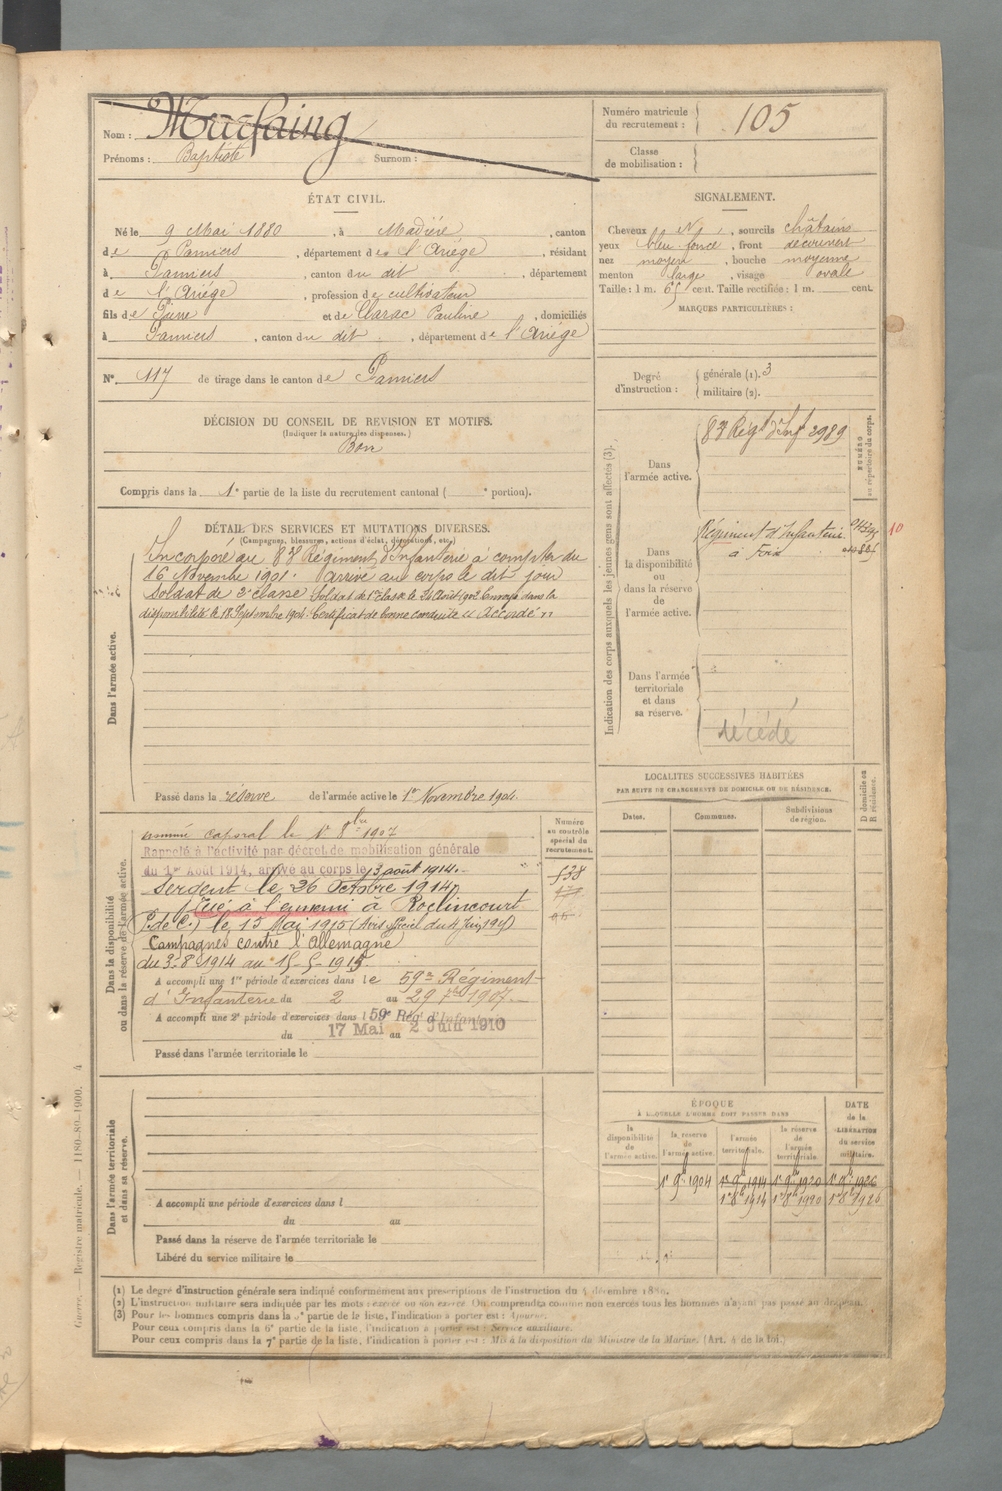 Nom : Marfaing
Prénoms : Baptiste Surnom :
Numéro matricule du recrutement : 105
Classe de mobilisation :
ÉTAT CIVIL.
Né le 9 Mai 1880, à Madière, canton
de Pamiers, département de l'Ariége, résidant
à Pamiers, canton du dit, département
de l'Ariége, profession de cultivateur
fils de et de Clarac Pauline, domiciliés
à Pamiers, canton du dit, département de l'Ariége
N° 117 de tirage dans le canton de Pamiers
SIGNALEMENT.
Cheveux N, sourcils châtains
yeux bleu foncé, front découvert
nez moyen, bouche moyenne
menton large, visage ovale
Taille : 1 m. 65 cent. Taille rectifiée : 1 m. cent.
MARQUES PARTICULIÈRES :
Degré d'instruction : générale (1). 3
militaire (2).
DÉCISION DU CONSEIL DE REVISION ET MOTIFS.
(Indiquer la nature des dispenses.)
Bon
Compris dans la 1e partie de la liste du recrutement cantonal ( e portion).
DÉTAIL DES SERVICES ET MUTATIONS DIVERSES.
(Campagnes, blessures, actions d'éclat, décorations, etc.)
Dans l'armée active.
Incorporé au 83e Régiment d'Infanterie à compter du
16 Novembre 1901. Arrivé au corps le dit jour
Soldat de 2e classe Soldat de 1re classe le 24 Août 1902 Envoyé dans la
disponibilité le 18 Septembre 1904. Certificat de bonne conduite « Accordé »
Passé dans la réserve de l'armée active le 1er Novembre 1904.
Dans la disponibilité
ou dans la réserve de l'armée active.
Numéro au contrôle spécial du recrutement.
nommé caporal le 1er 8bre 1907
Rappelé à l'activité par décret de mobilisation générale
du 1er Août 1914, arrivé au corps le 3 août 1914.
Sergent le 26 Octobre 1914
Tué à l'ennemi à Roclincourt
(P. de C.) le 15 Mai 1915 (Avis officiel du 4 Juin 1915)
Campagnes contre l'Allemagne
du 3-8-1914 au 15-5-1915
A accompli une 1re période d'exercices dans le 59e Régiment
d'Infanterie du 2 au 29 7bre 1907.
A accompli une 2e période d'exercices dans l 59e Rég' d'Infanterie
du 17 Mai au 2 Juin 1910
Passé dans l'armée territoriale le
538
Dans l'armée territoriale
et dans sa réserve.
A accompli une période d'exercices dans l
du au
Passé dans la réserve de l'armée territoriale le
Libéré du service militaire le
Indication des corps auxquels les jeunes gens sont affectés (3).
NUMÉRO au répertoire du corps.
Dans l'armée active.
83e Régt d'Inf 2989
Dans la disponibilité ou dans la réserve de l'armée active.
Régiment d'Infanterie
à Foix
10
Dans l'armée territoriale et dans sa réserve.
décédé
LOCALITÉS SUCCESSIVES HABITÉES
PAR SUITE DE CHANGEMENTS DE DOMICILE OU DE RÉSIDENCE.
D domicile ou R résidence.
Dates. Communes. Subdivisions de région.
ÉPOQUE
À LAQUELLE L'HOMME DOIT PASSER DANS
DATE de la LIBÉRATION du service militaire.
la disponibilité de l'armée active.
la réserve de l'armée active.
l'armée territoriale.
la réserve de l'armée territoriale.
1er 9b 1904 1er 9b 1914 1er 9b 1920 1er 9b 1926
1er 8b 1914 1er 8b 1920 1er 8b 1926
(1) Le degré d'instruction générale sera indiqué conformément aux prescriptions de l'instruction du 4 décembre 1889.
(2) L'instruction militaire sera indiquée par les mots : exercé ou non exercé. On comprendra comme non exercés tous les hommes n'ayant pas passé au drapeau.
(3) Pour les hommes compris dans la 5e partie de la liste, l'indication à porter est : Ajourné.
Pour ceux compris dans la 6e partie de la liste, l'indication à porter est : Service auxiliaire.
Pour ceux compris dans la 7e partie de la liste, l'indication à porter est : Mis à la disposition du Ministre de la Marine. (Art. 4 de la loi.)
Guerre. — Registre matricule. — 1180-89-1900. 4